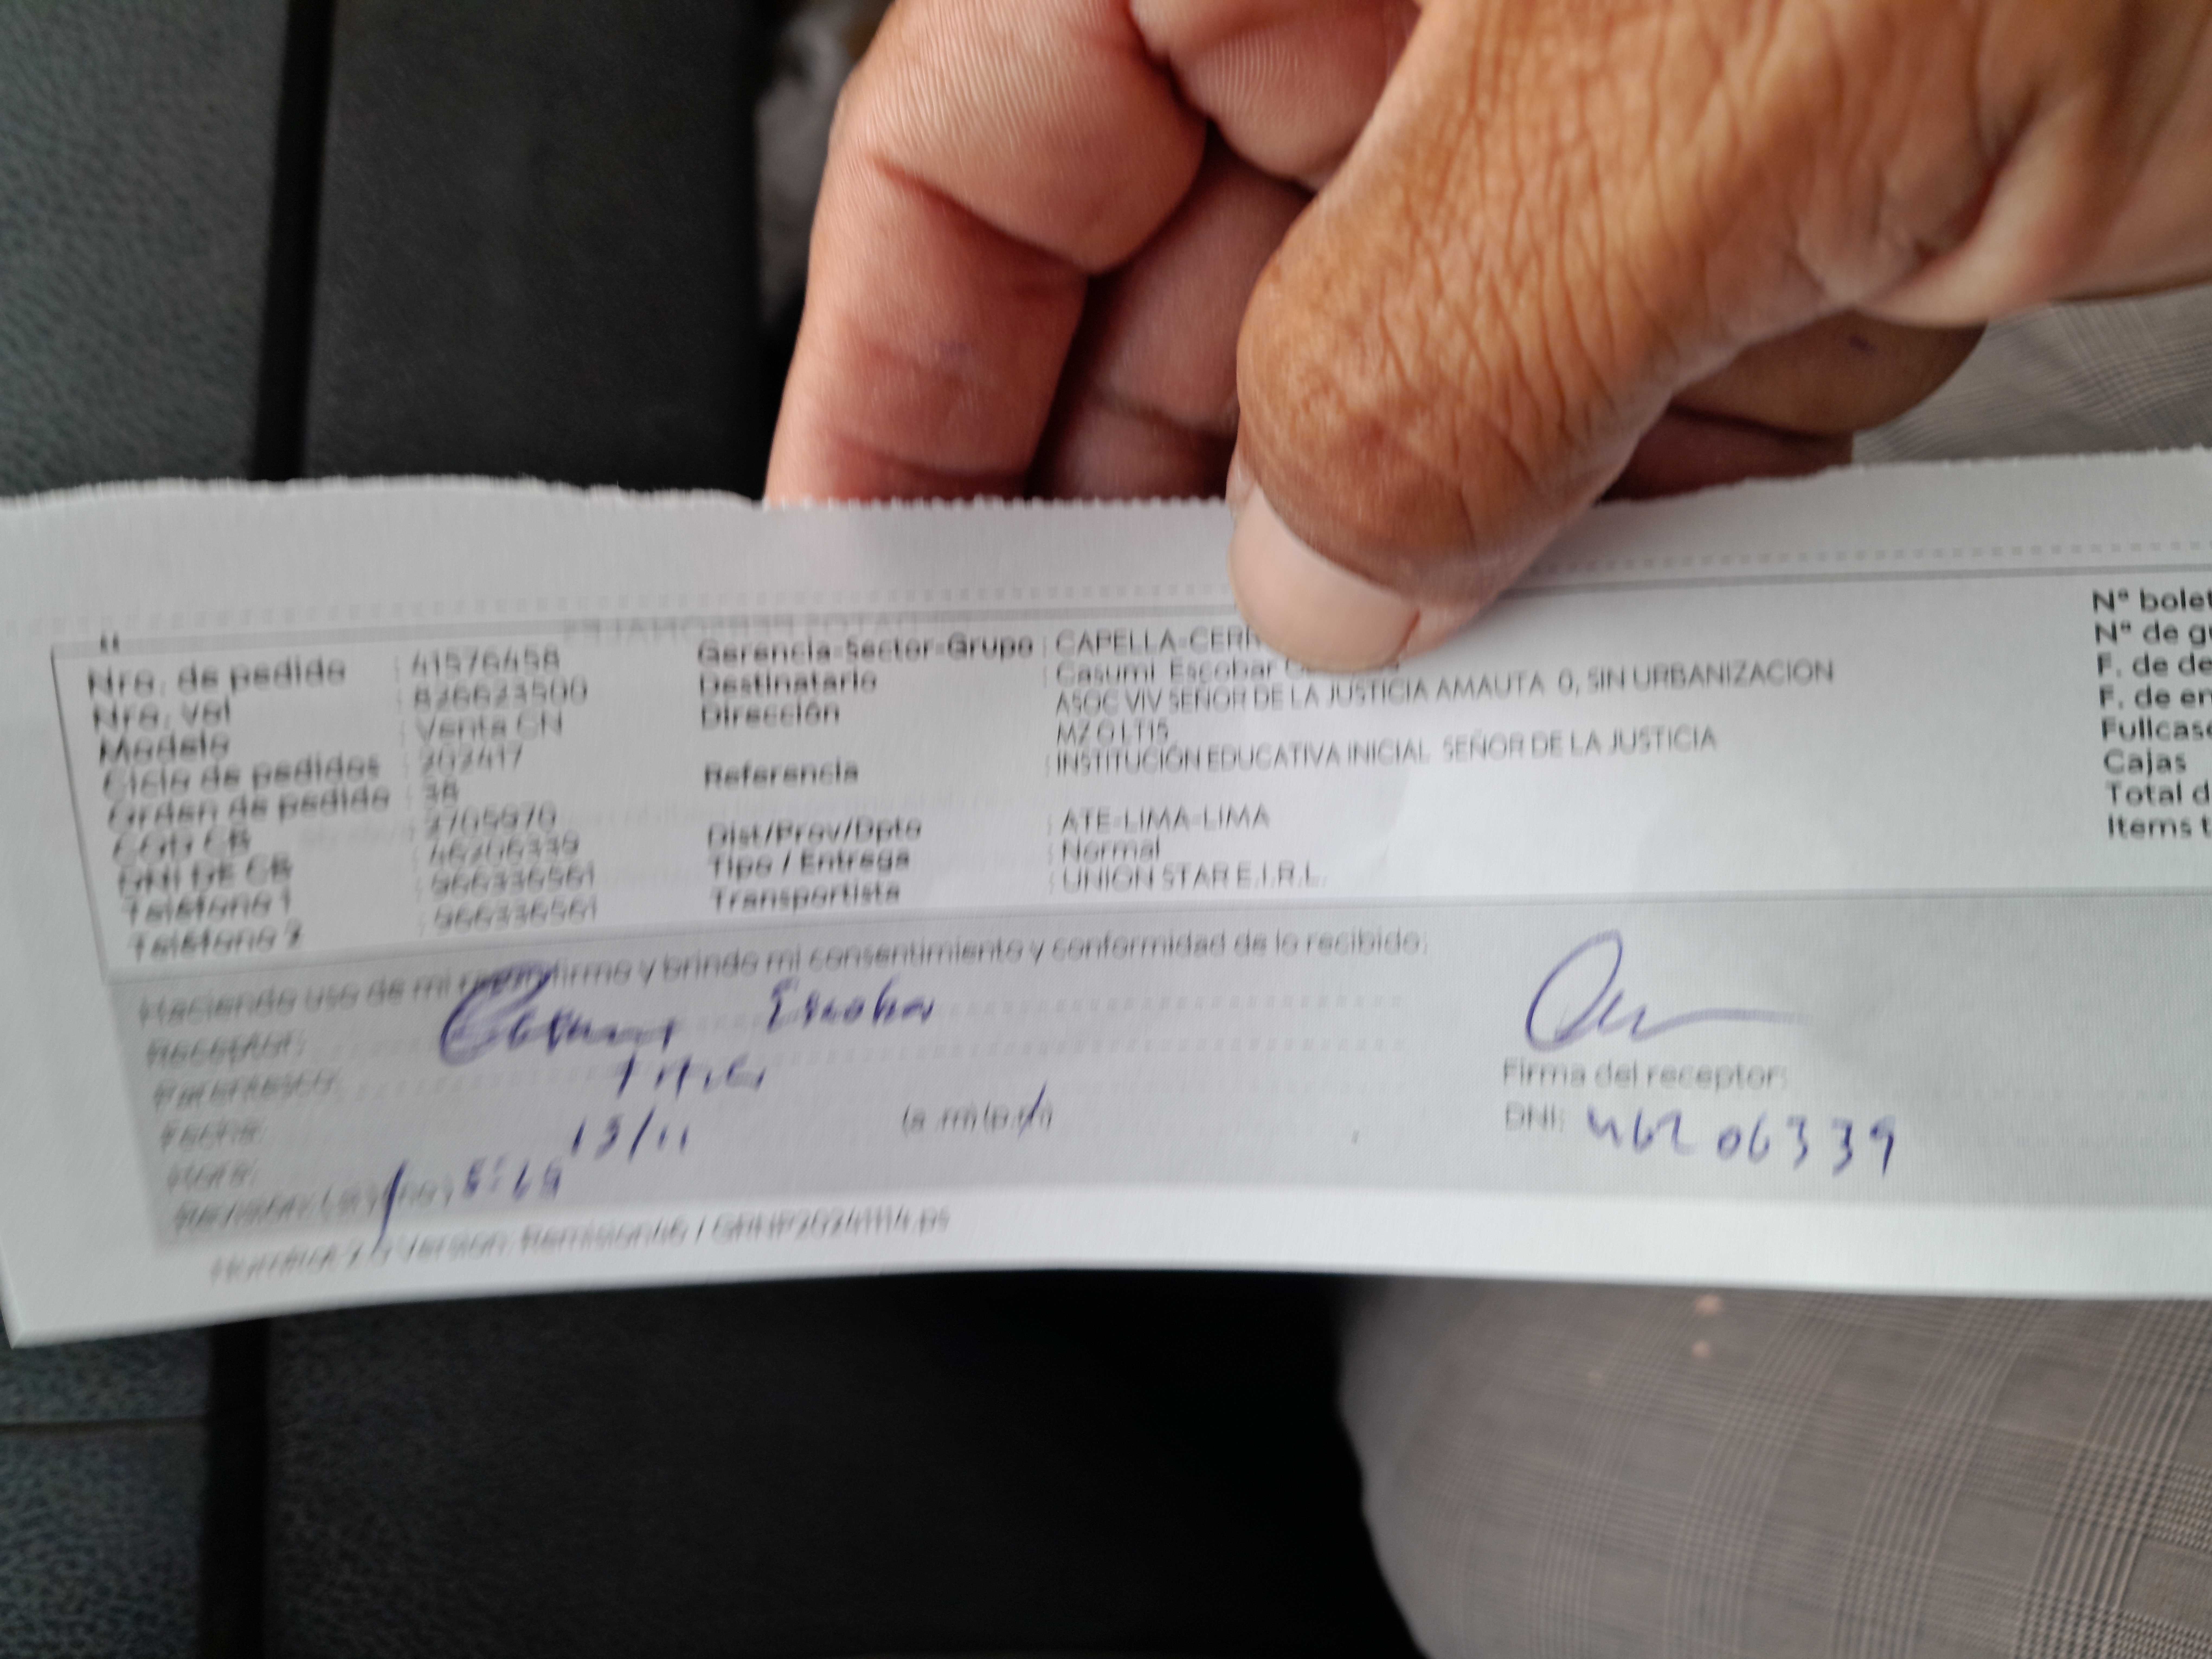 Nro. de pedido : 41576458
Nro. Val : 826623500
Modelo : Venta CN
Ciclo de pedidos : 202417
Orden de pedido : 38
COD CB : 2705970
DNI DE CB : 46206339
Teléfono 1 : 966336561
Teléfono 2 : 966336561
Gerencia-Sector-Grupo : CAPELLA-CERR
Destinatario : Casumi Escobar
Dirección : ASOC VIV SEÑOR DE LA JUSTICIA AMAUTA 0, SIN URBANIZACION
MZ O LT15
Referencia : INSTITUCIÓN EDUCATIVA INICIAL SEÑOR DE LA JUSTICIA
Dist/Prov/Dpto : ATE-LIMA-LIMA
Tipo / Entrega : Normal
Transportista : UNION STAR E.I.R.L.
N° bolet
N° de gu
F. de de
F. de en
Fullcase
Cajas
Total d
Items t
Haciendo uso de mi firmo y brindo mi consentimiento y conformidad de lo recibido:
Receptor: Casumi Escobar
Parentesco:
Fecha: 13/11
Hora: (a.m) (p.m)
Firma del receptor:
DNI: 46206339